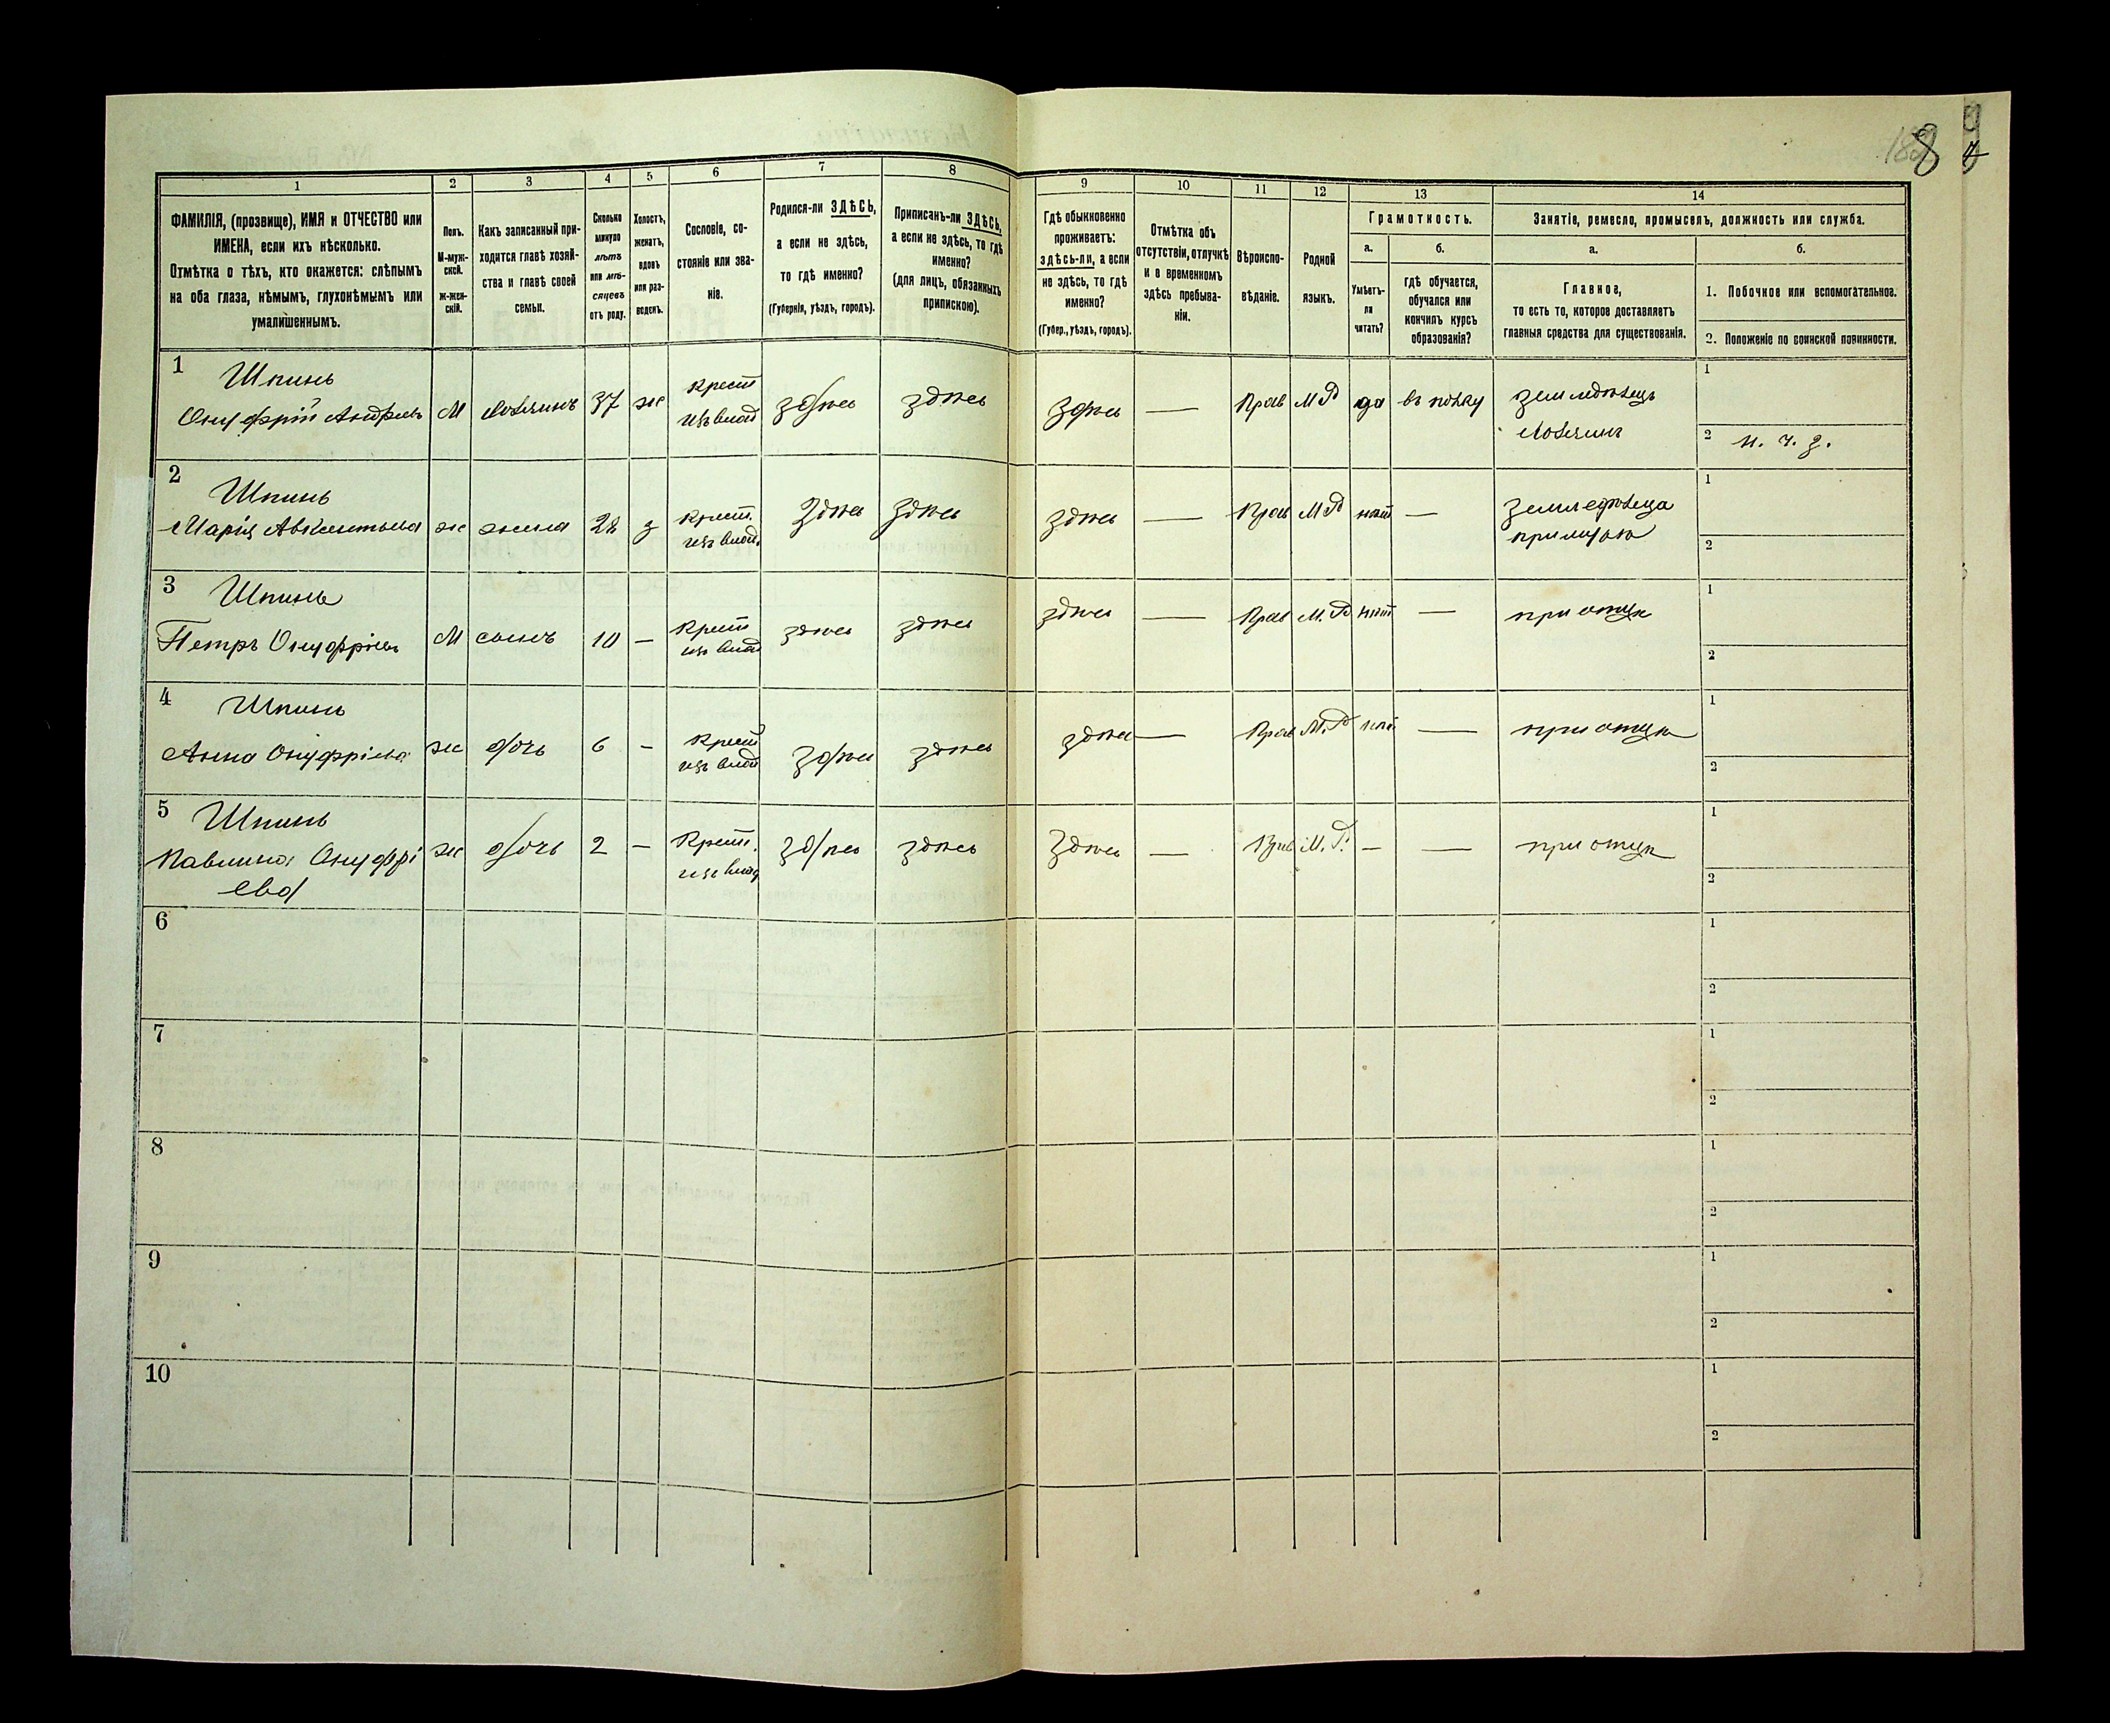 188 8
9
4
1 2 3 4 5 6 7 8 9 10 11 12 13 14
ФАМИЛІЯ, (прозвище), ИМЯ и ОТЧЕСТВО или
ИМЕНА, если ихъ нѣсколько.
Отмѣтка о тѣхъ, кто окажется: слѣпымъ
на оба глаза, нѣмымъ, глухонѣмымъ или
умалишеннымъ.
Полъ.
М-муж-
ской.
ж-жен-
скій.
Какъ записанный при-
ходится главѣ хозяй-
ства и главѣ своей
семьи.
Сколько
минуло
лѣтъ
или мѣ-
сяцевъ
отъ роду.
Холостъ,
женатъ,
вдовъ
или раз-
веденъ.
Сословіе, со-
стояніе или зва-
ніе.
Родился-ли ЗДѢСЬ,
а если не здѣсь,
то гдѣ именно?
(Губернія, уѣздъ, городъ).
Приписанъ-ли ЗДѢСЬ,
а если не здѣсь, то гдѣ
именно?
(для лицъ, обязанныхъ
припискою).
Гдѣ обыкновенно
проживаетъ:
здѣсь-ли, а если
не здѣсь, то гдѣ
именно?
(Губер., уѣздъ, городъ).
Отмѣтка объ
отсутствіи, отлучкѣ
и о временномъ
здѣсь пребыва-
ніи.
Вѣроиспо-
вѣданіе.
Родной
языкъ.
Грамотность.
а. б.
Умѣетъ-
ли
читать?
гдѣ обучается,
обучался или
кончилъ курсъ
образованія?
Занятіе, ремесло, промыселъ, должность или служба.
а. б.
Главное,
то есть то, которое доставляетъ
главныя средства для существованія.
1. Побочное или вспомогательное.
2. Положеніе по воинской повинности.
1 Шпинь
Онуфрій Андреевъ М хозяинъ 37 ж Крест изъ влад здѣсь здѣсь здѣсь — Прав М Р да въ полку земледѣлецъ хозяинъ 1
2 н. ч. з.
2 Шпинь
Марія Авксентьева ж жена 28 з Крест. изъ влад. здѣсь здѣсь здѣсь — Прав М Р нѣт — земледѣлица при мужѣ 1
2
3 Шпинь
Петръ Онуфріевъ М сынъ 10 — Крест изъ влад здѣсь здѣсь здѣсь — Прав М. Р нѣт — при отцѣ 1
2
4 Шпинь
Анна Онуфріева ж дочь 6 — Крест изъ влад здѣсь здѣсь здѣсь — Прав М. Р нѣт — при отцѣ 1
2
5 Шпинь
Павлина Онуфрі
ева ж дочь 2 — Крест. изъ влад здѣсь здѣсь здѣсь — Прав М. Р. — — при отцѣ 1
2
6 1
2
7 1
2
8 1
2
9 1
2
10 1
2